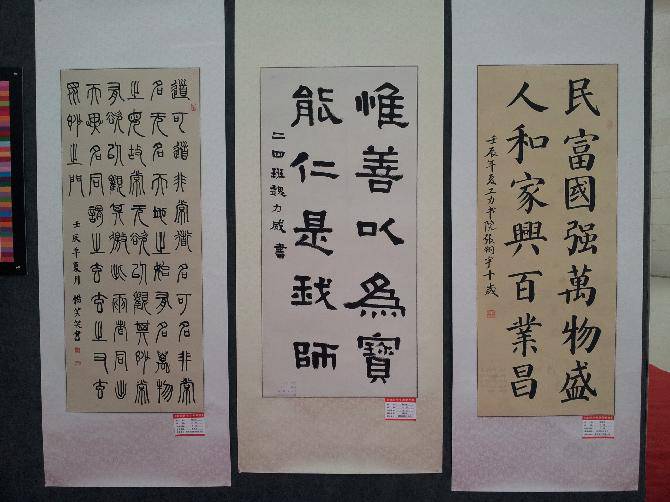 道可道非常道名可名非常
名无名天地之始有名萬物
之母故常无欲以觀其妙常
有欲以觀其徼此兩者同出
而異名同謂之玄玄之又玄
眾妙之門
壬辰年夏月
惟善以為寶
能仁是我師
二四班魏力威書
民富國强萬物盛
人和家興百業昌
壬辰年夏工力书院張炯宇十歲